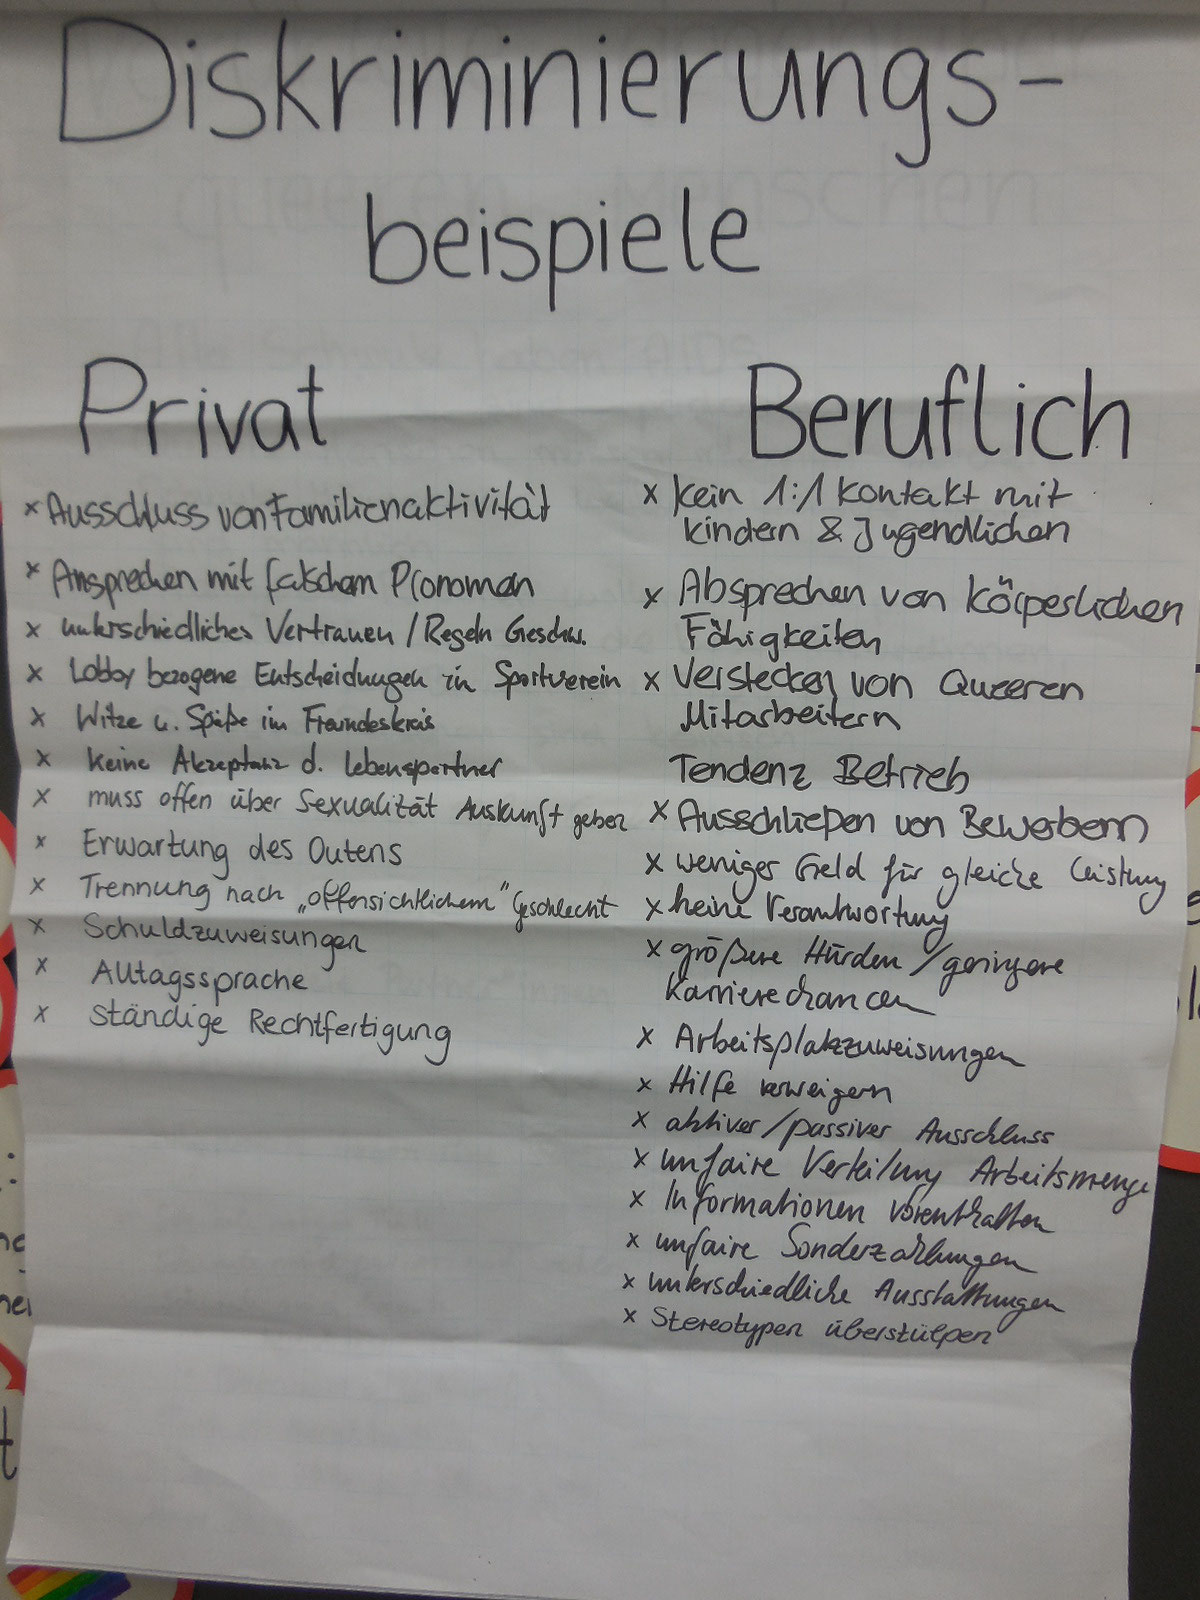 Diskriminierungs-
beispiele
Privat
x Ausschluss von Familienaktivität
x Ansprechen mit falschem Pronomen
x unterschiedliches Vertrauen / Regeln Geschw.
x Lobby bezogene Entscheidungen in Sportverein
x Witze u. Späße im Freundeskreis
x keine Akzeptanz d. Lebenspartner
x muss offen über Sexualität Auskunft geben
x Erwartung des Outens
x Trennung nach „offensichtlichem" Geschlecht
x Schuldzuweisungen
x Alltagssprache
x ständige Rechtfertigung
Beruflich
x kein 1:1 Kontakt mit
kindern & Jugendlichen
x Absprechen von körperlichen
Fähigkeiten
x Verstecken von Queeren
Mitarbeitern
Tendenz Betrieb
x Ausschließen von Bewerbern
x weniger Geld für gleiche Leistung
x keine Verantwortung
x größere Hürden / geringere
Karrierechancen
x Arbeitsplatzzuweisungen
x Hilfe verweigern
x aktiver / passiver Ausschluss
x unfaire Verteilung Arbeitsmenge
x Informationen vorenthalten
x unfaire Sonderzahlungen
x unterschiedliche Ausstattungen
x Stereotypen überstülpen